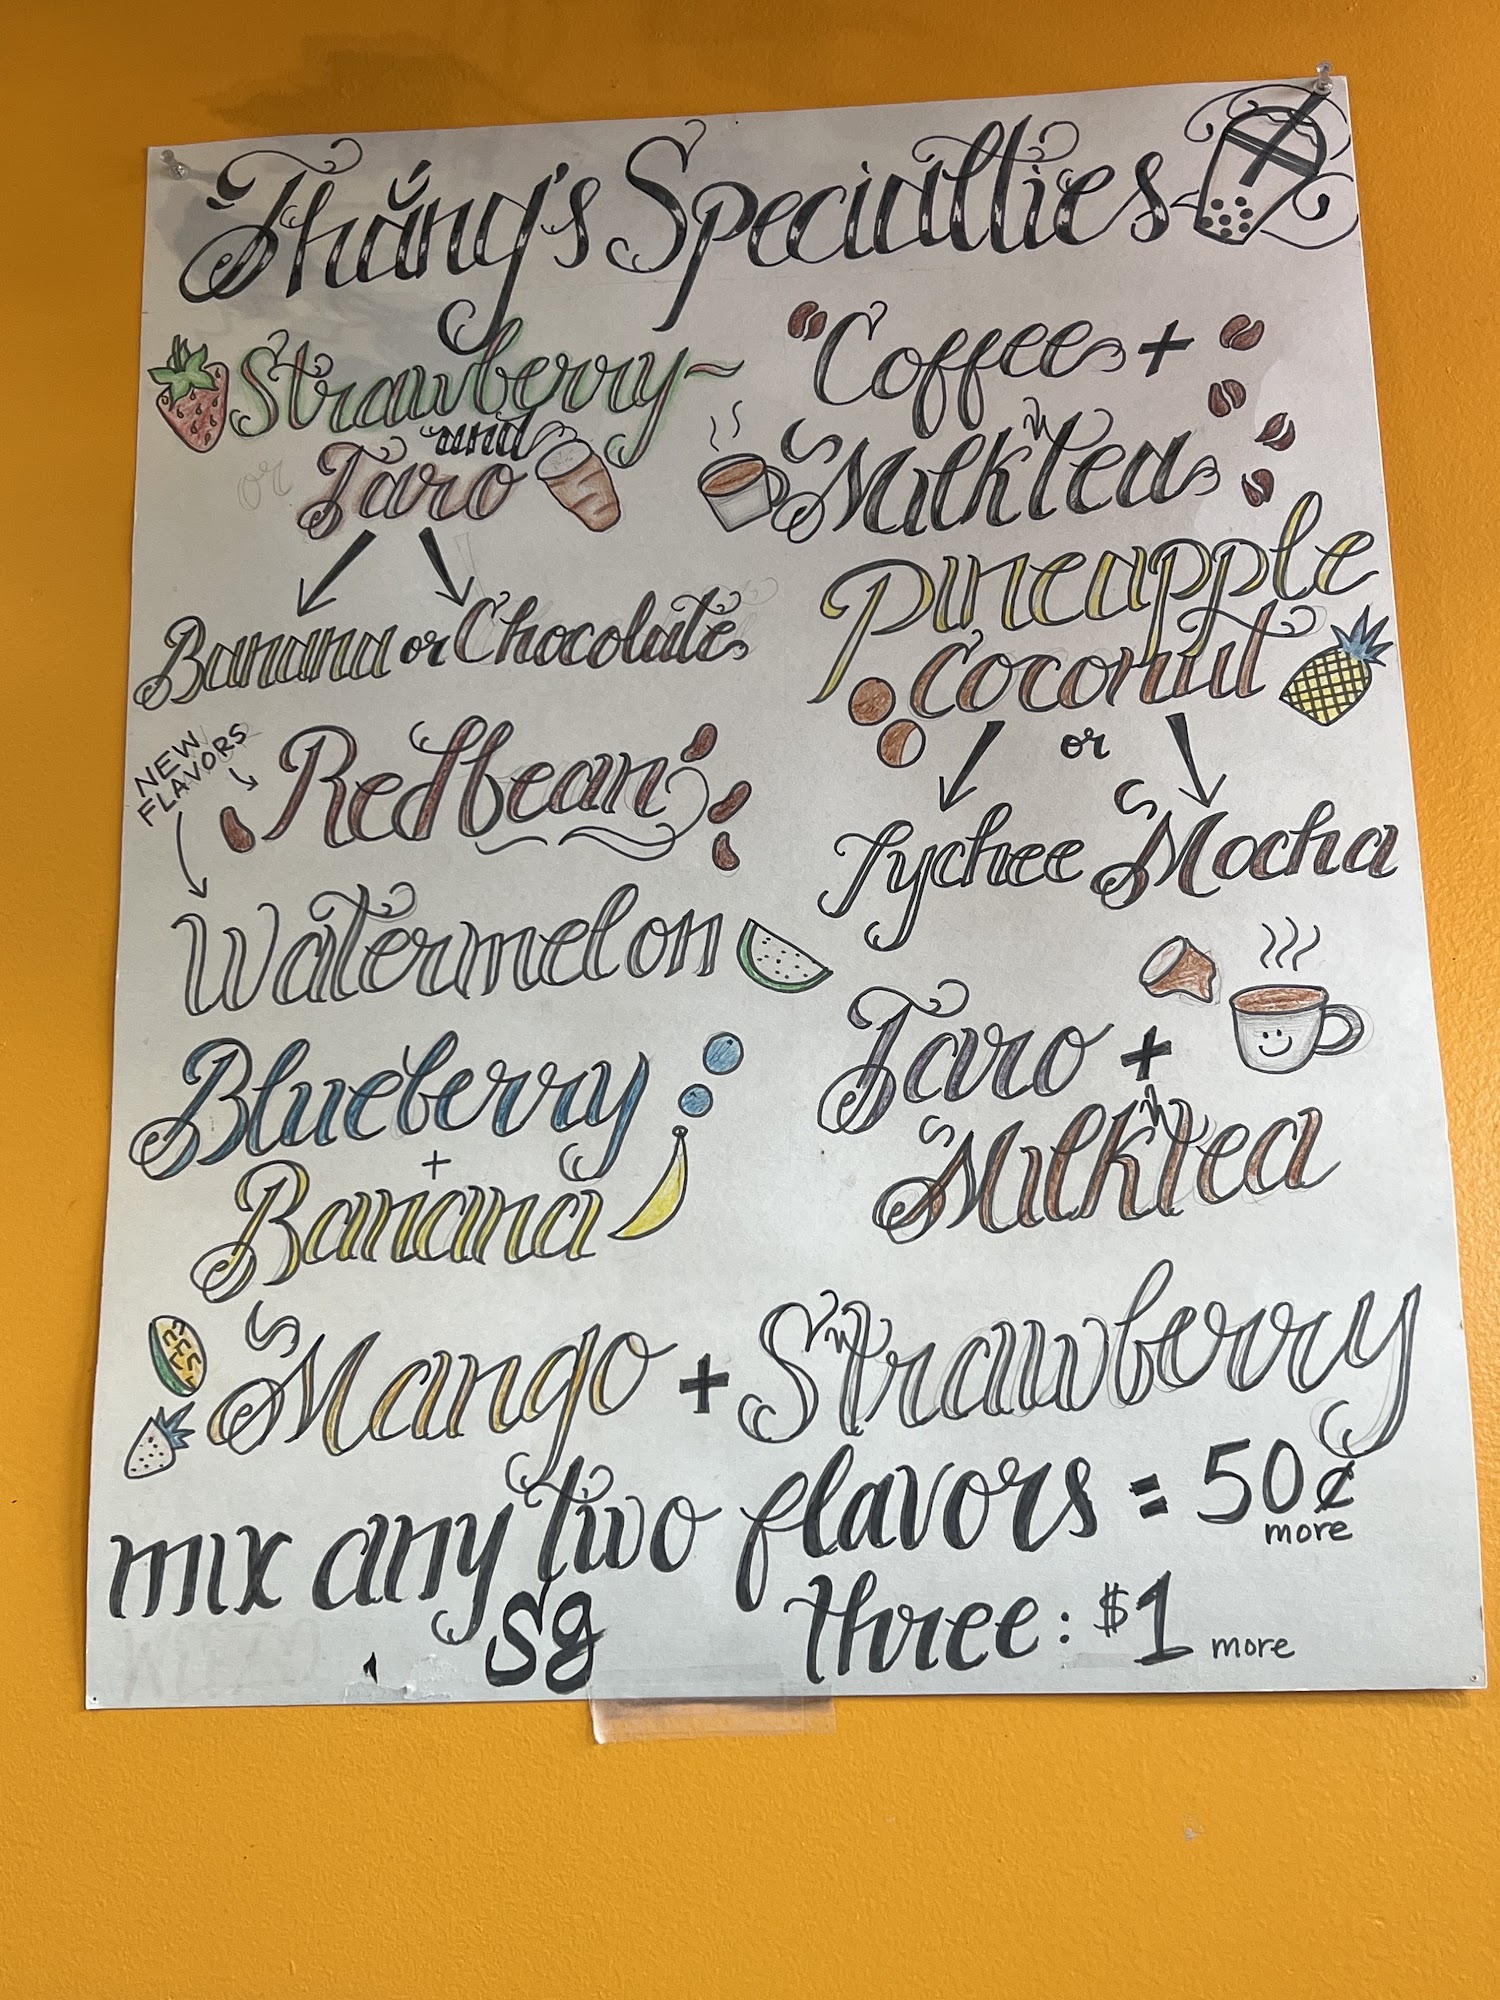 Thắng's Specialties
Strawberry~
and
or Taro
Banana or Chocolate
NEW
FLAVORS
Redbean
Watermelon
Blueberry
+
Banana
Coffee +
Milktea
Pineapple
Coconut
or
Lychee Mocha
Taro +
Milktea
Mango + Strawberry
mix any two flavors = 50¢
more
three: $1 more
Sg